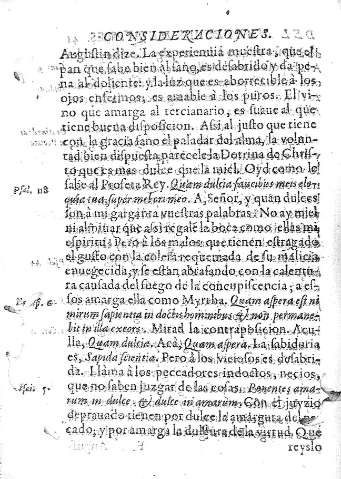 CONSIDERACIONES.
Augustin dize. La experiencia muestra, que el
pan que sabe bien al sano, es desabrido y da pe-
na al doliente: y la luz que es aborrecible à los
ojos enfermos, es amable à los puros. El vi-
no que amarga al tercianario, es suaue al que
tiene buena disposicion. Assi al justo que tiene
con la gracia sano el paladar del alma, la volun-
tad bien dispuesta, parecele la Dotrina de Chris-
to que es mas dulce que la miel. Oyd como le
sabe al Profeta Rey. Quàm dulcia faucibus meis elo-
Psal. 118
quia tua, super mel ori meo. A, Señor, y quan dulces
son à mi garganta vuestras palabras! No ay miel
ni almiuar que assi regale la boca como ellas mi
espiritu. Pero à los malos que tienen estragado
el gusto con la colera requemada de su malicia
enuegecida, y se estan abrasando con la calentu-
ra causada del fuego de la concupiscencia, a es-
sos amarga ella como Myrrha. Quam aspera est ni
mirum sapientia indoctis hominibus & non permane-
bit in illa excors. Mirad la contraposicion. Acu-
lla, Quam dulcia. Acà, Quam aspera. La sabiduria
es, Sapida scientia. Pero à los viciosos es desabri-
da. Llama à los peccadores indoctos, necios,
que no saben juzgar de las cosas. Ponentes ama-
rum in dulce, & dulce in amarum. Con el juyzio
deprauado tienen por dulce la amargura del pe-
cado, y por amarga la dulçura de la virtud. Que
reyslo